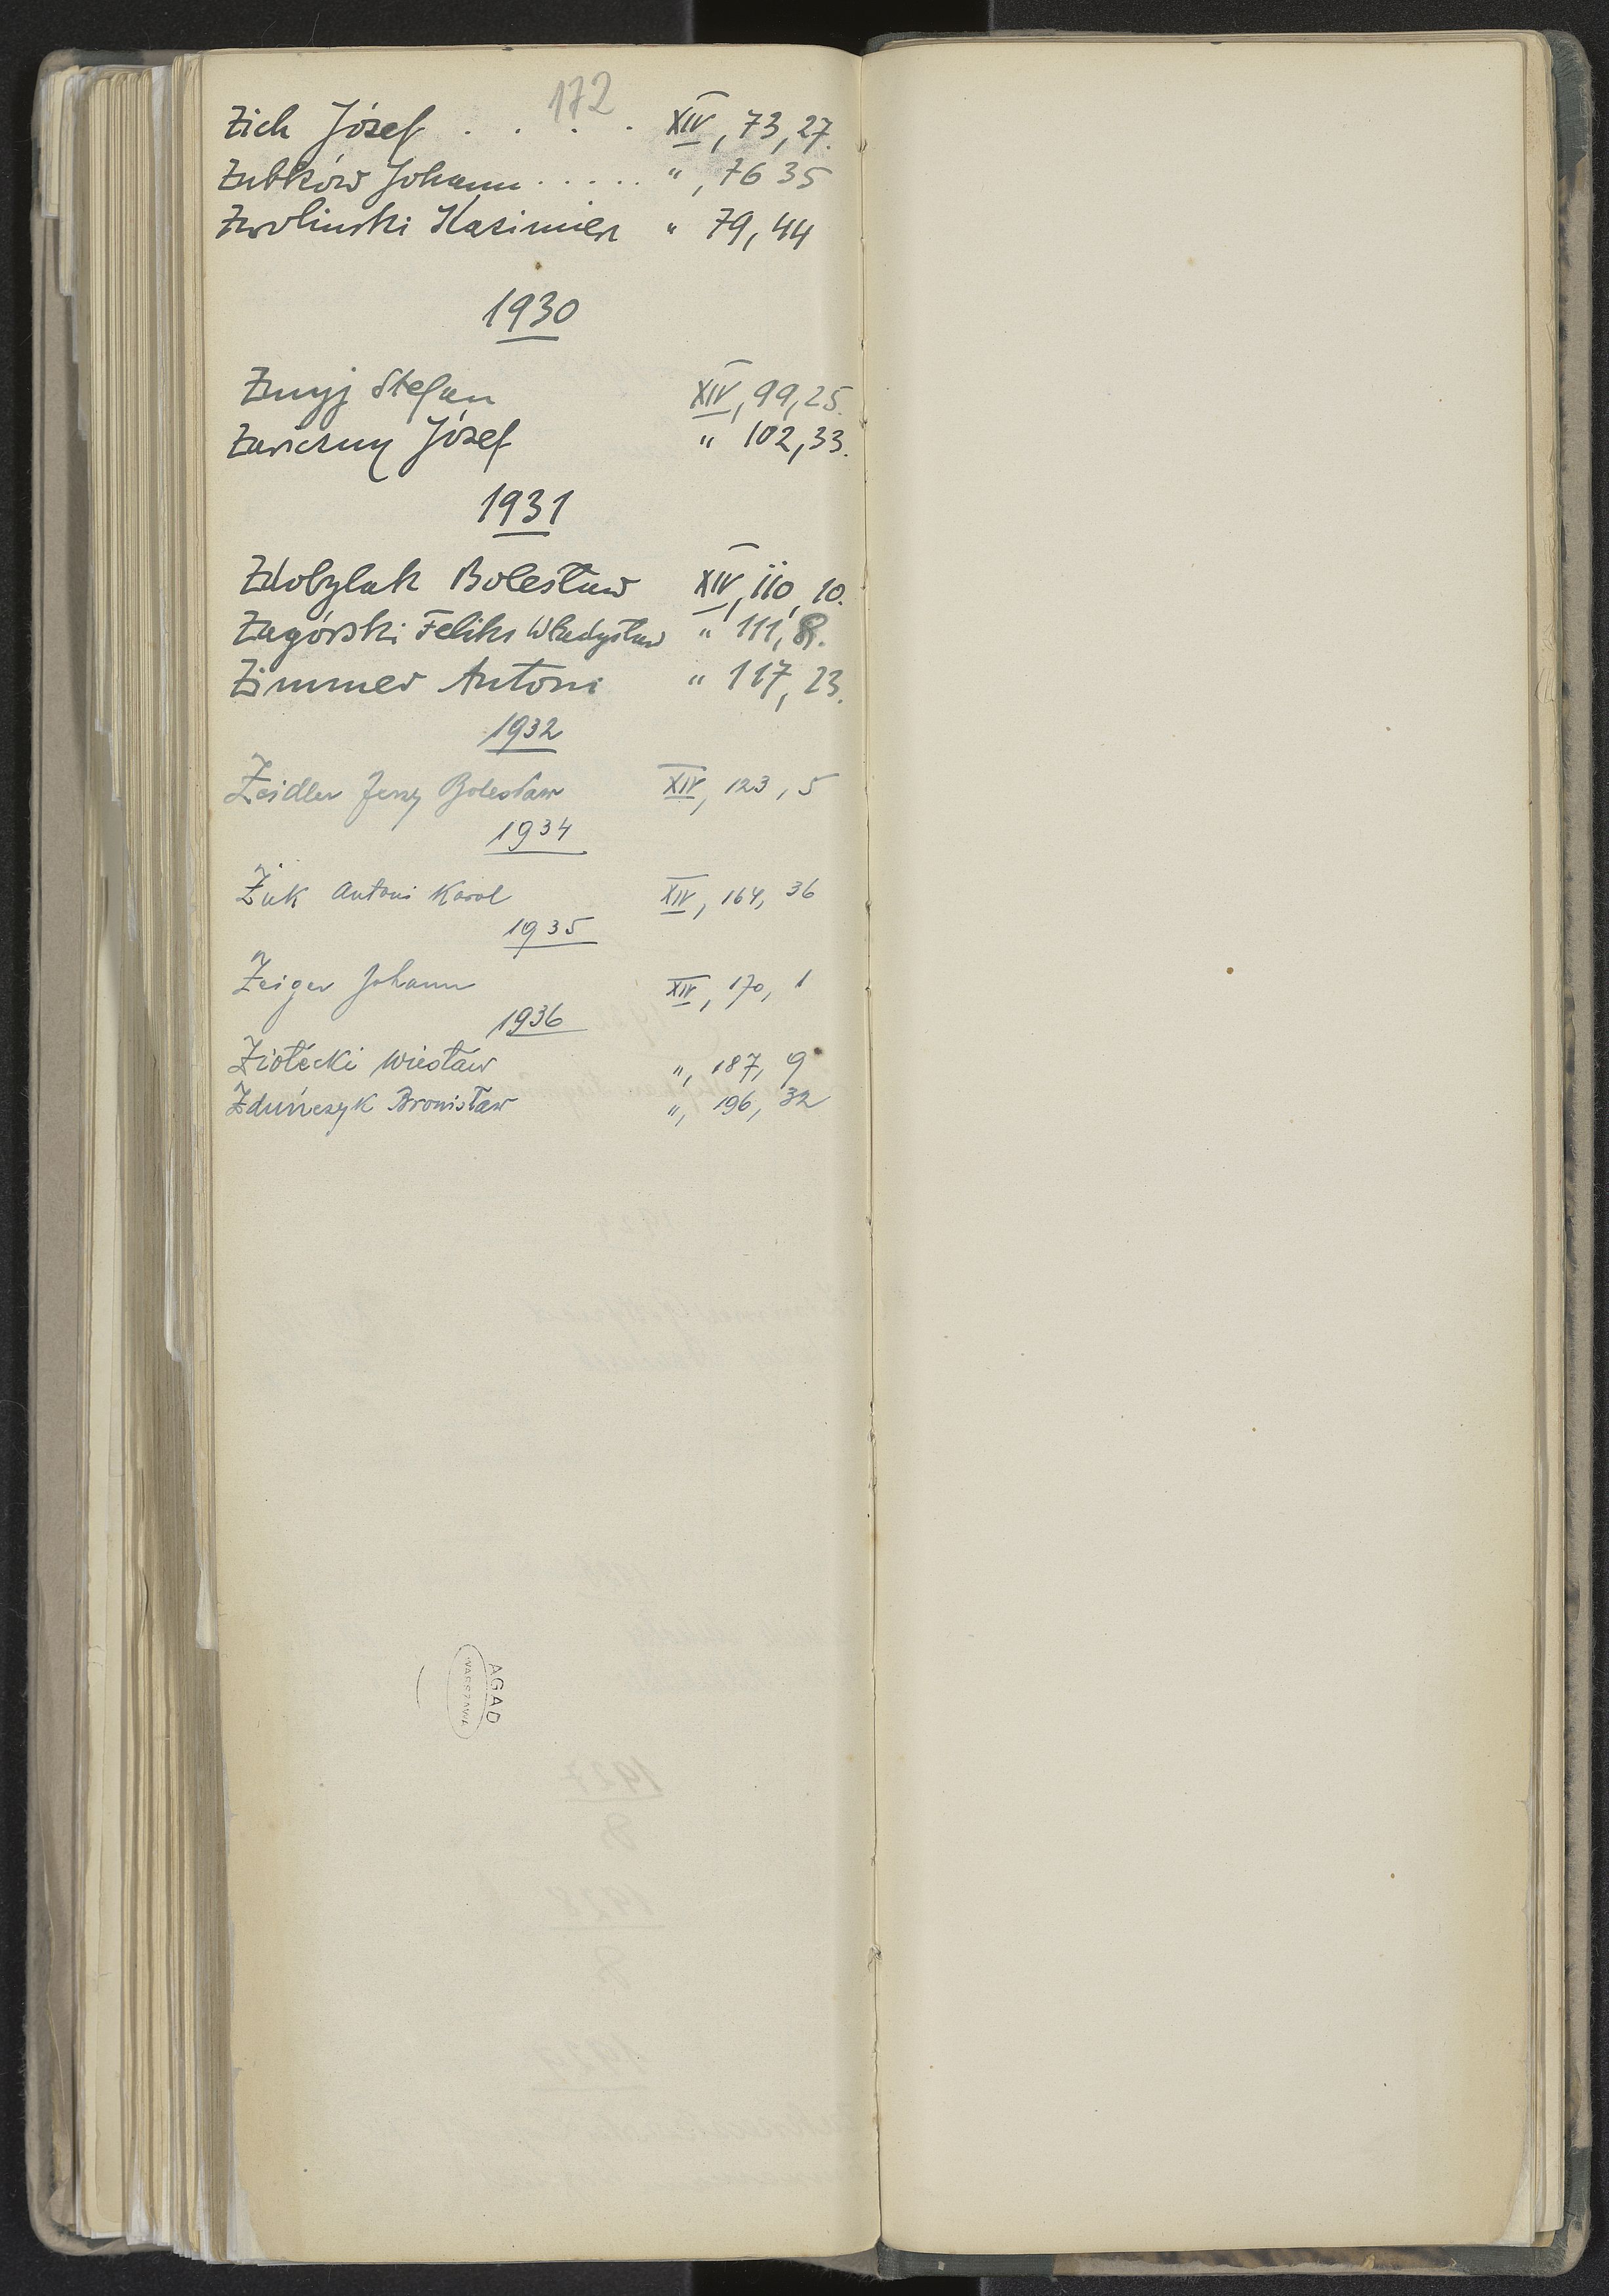 172
Zich Józef . . . . XIV, 73, 27.
Zubków Johann ..... " , 76 35
Zwolinski Kazimierz " 79, 44
1930
Zmyj Stefan XIV, 99, 25.
Zawiczny Józef " 102, 33.
1931
Zdobylak Bolesław XIV, 110, 10.
Zagórski Feliks Władysław " 111,
Zimmer Antoni " 117, 23.
1932
Zeidler Jerzy Bolesław XIV, 123, 5
1934
Żuk Antoni Karol XIV, 164, 36
1935
Zeiger Johann XIV, 170, 1
1936
Ziołecki Wiesław ", 187, 9
Zduńczyk Bronisław ", 196, 32
AGAD
WARSZAWA